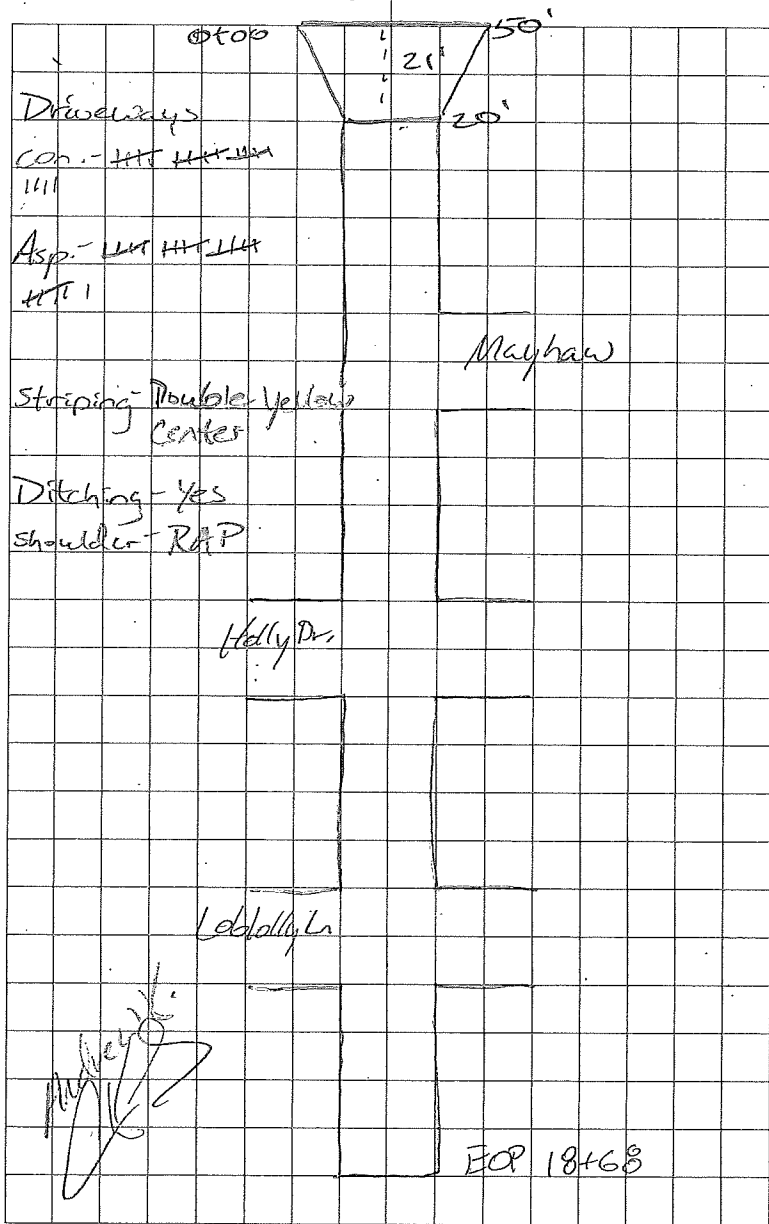 0+00
50'
21'
20'
Driveways
Con. - 𝍸 𝍸 𝍸
IIII
Asp. - 𝍸 𝍸 𝍸
𝍸 I
Mayhaw
Striping - Double Yellow
Center
Ditching - Yes
Shoulder - RAP
Holly Dr.
Loblolly Ln
EOP 18+68